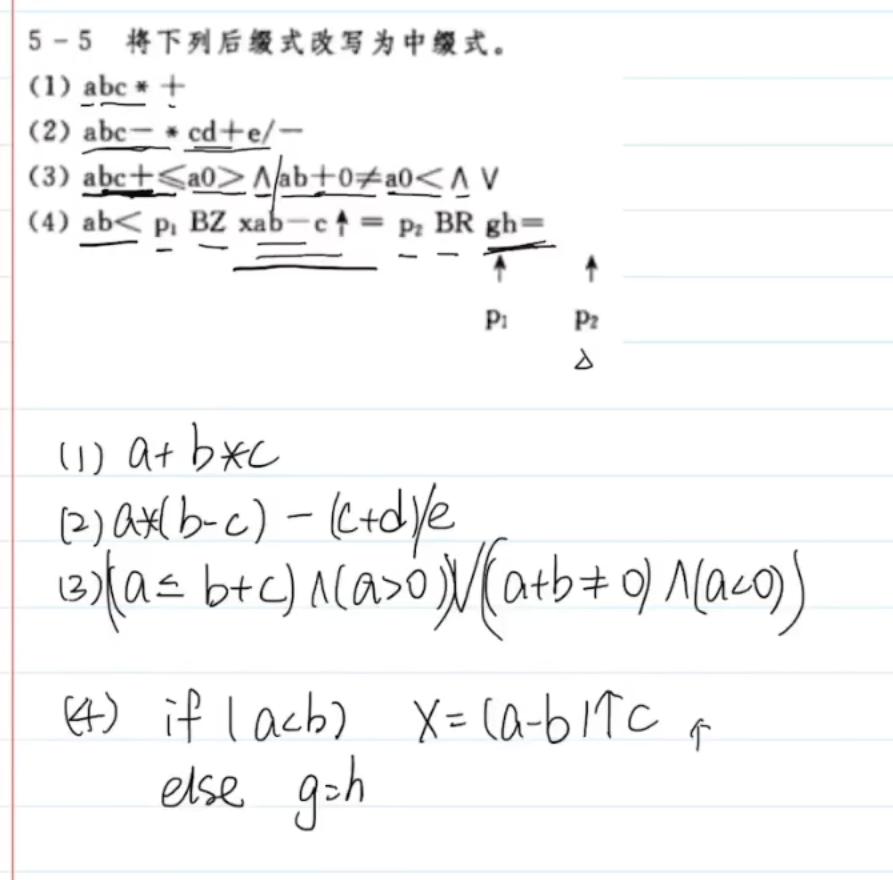 5-5 将下列后缀式改写为中缀式。
(1) abc*+
(2) abc-*cd+e/-
(3) abc+≤a0>∧ab+0≠a0<∧∨
(4) ab< p₁ BZ xab-c↑= p₂ BR gh=
↑ ↑
p₁ p₂
(1) a+b*c
(2) a*(b-c)-(c+d)/e
(3) ((a≤b+c)∧(a>0))∨((a+b≠0)∧(a<0))
(4) if (a<b) x=(a-b)↑c ↑
else g=h